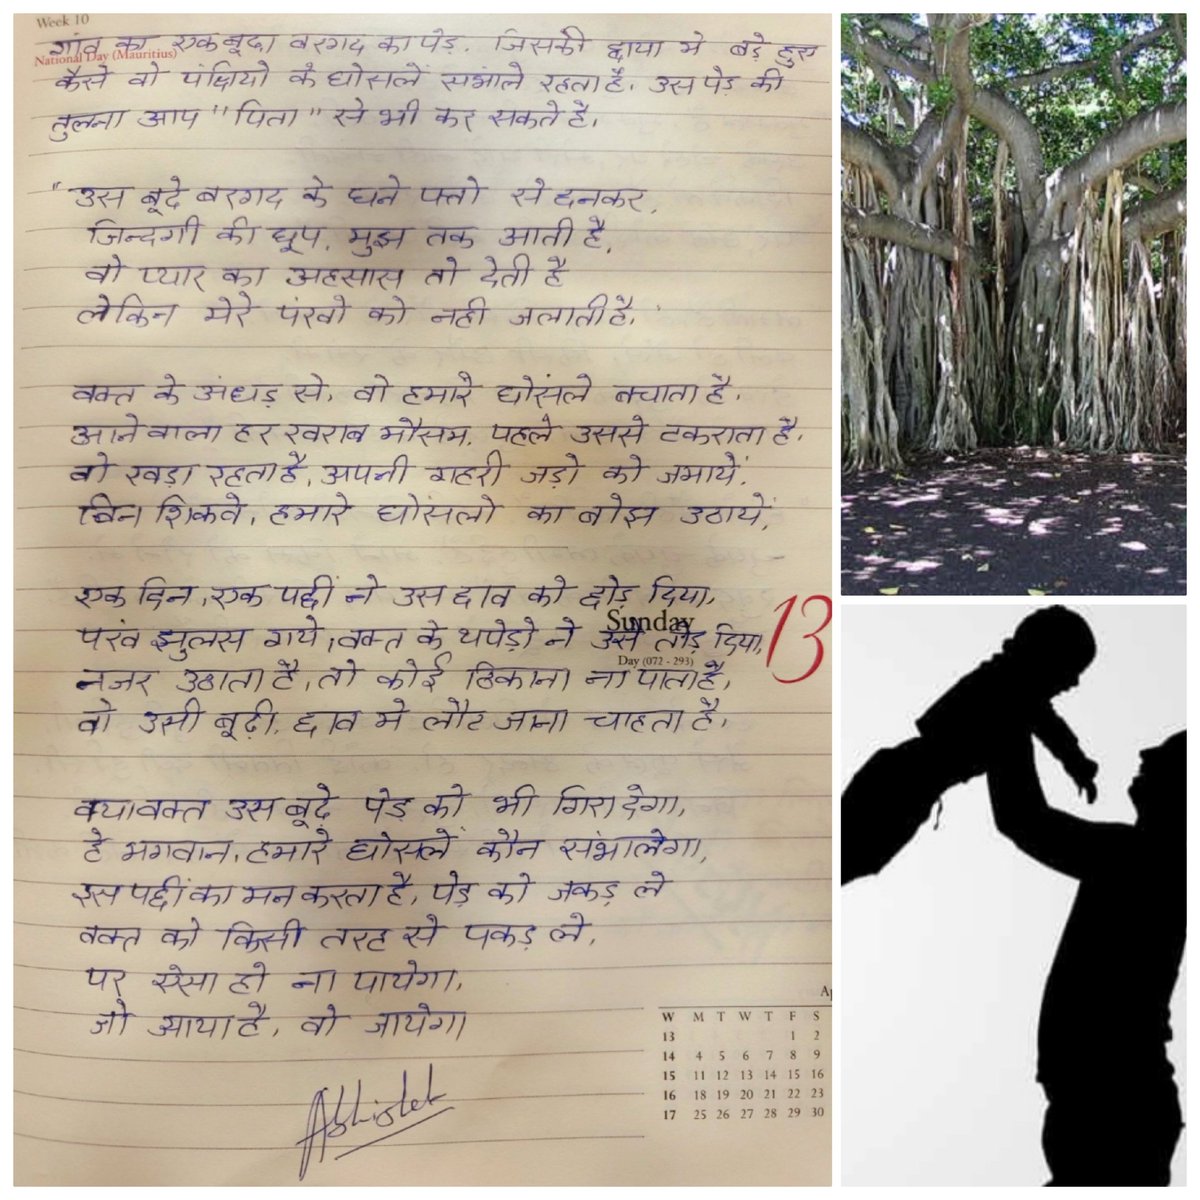 Week 10
National Day (Mauritius)
गांव का एक बूढा बरगद का पेड़. जिसकी छाया मे बड़े हुए
कैसे वो पंछियो के घोसलें संभाले रहता है. उस पेड़ की
तुलना आप "पिता" से भी कर सकते है.
"उस बूढे बरगद के घने पत्तो से छनकर,
जिन्दगी की धूप, मुझ तक आती है,
वो प्यार का अहसास तो देती है
लेकिन मेरे पंखो को नही जलाती है."
वक्त के अंधड़ से, वो हमारे घोंसले बचाता है.
आने वाला हर खराब मौसम, पहले उससे टकराता है.
वो खड़ा रहता है, अपनी गहरी जड़ो को जमायें.
बिन शिकवे, हमारे घोंसलो का बोझ उठायें,
एक दिन, एक पछीं ने उस छाव को छोड़ दिया,
Sunday
13
पंख झुलस गये, वक्त के थपेड़ो ने उसे तोड़ दिया,
Day (072 - 293)
नजर उठाता है, तो कोई ठिकाना ना पाता है,
वो उसी बूढ़ी, छाव मे लौट जाना चाहता है.
क्या वक्त उस बूढे पेड़ को भी गिरा देगा,
हे भगवान, हमारे घोसलें कौन संभालेगा,
इस पछीं का मन करता है, पेड़ को जकड़ ले
वक्त को किसी तरह से पकड़ ले,
पर ऐसा हो ना पायेगा,
जो आया है, वो जायेगा
Abhishek
Ap
W M T W T F S
13 1 2
14 4 5 6 7 8 9
15 11 12 13 14 15 16
16 18 19 20 21 22 23
17 25 26 27 28 29 30